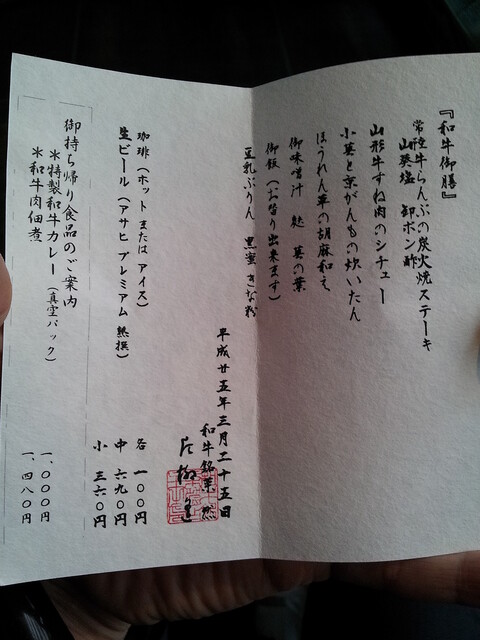 『和牛御膳』
常陸牛らんぷの炭火焼ステーキ
山葵塩 卸ポン酢
山形牛すね肉のシチュー
小蕪と京がんもの炊いたん
ほうれん草の胡麻和え
御味噌汁 麩 蕪の葉
御飯（お替り出来ます）
豆乳ぷりん 黒蜜 きな粉
平成廿五年三月二十五日
和牛銘菜 然
珈琲（ホットまたはアイス） 各 一〇〇円
生ビール（アサヒ プレミアム 熟撰） 中 六九〇円
小 三六〇円
御持ち帰り食品のご案内
＊特製和牛カレー（真空パック） 一、〇〇〇円
＊和牛肉佃煮 一、四八〇円